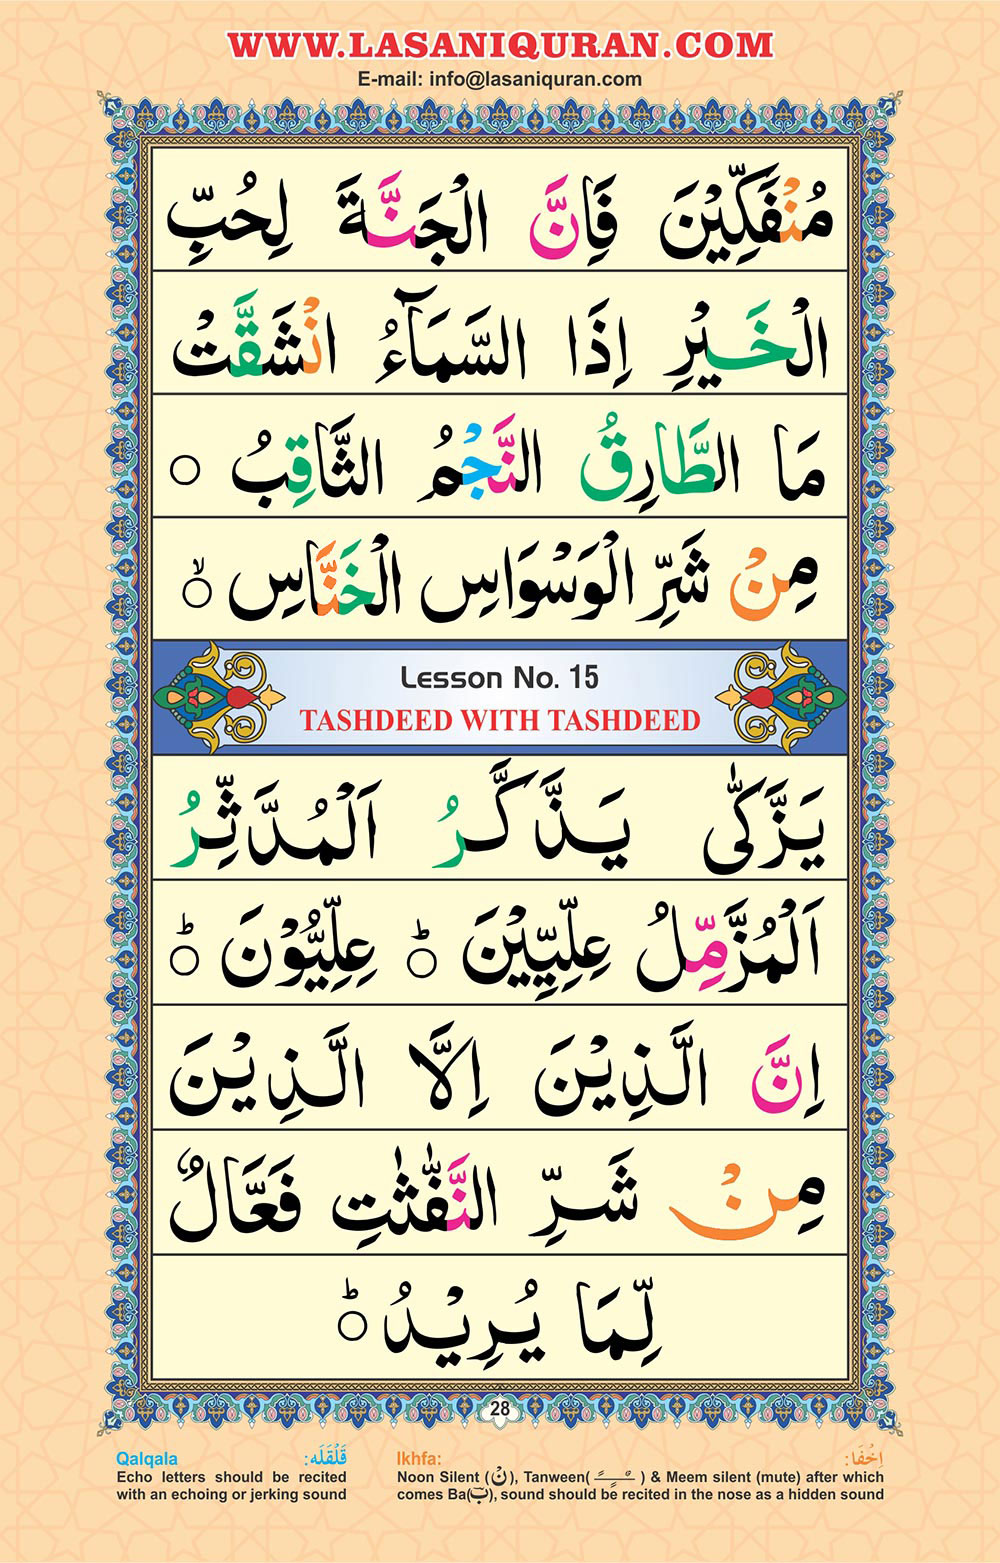 WWW.LASANIQURAN.COM
E-mail: info@lasaniquran.com
مُنْفَكِّيْنَ فَاِنَّ الْجَنَّةَ لِحُبِّ
الْخَيْرِ اِذَا السَّمَآءُ انْشَقَّتْ
مَا الطَّارِقُ النَّجْمُ الثَّاقِبُ ○
مِنْ شَرِّ الْوَسْوَاسِ الْخَنَّاسِ ○ۙ
Lesson No. 15
TASHDEED WITH TASHDEED
يَزَّكّٰى يَذَّكَّرُ اَلْمُدَّثِّرُ
اَلْمُزَّمِّلُ عِلِّيِّيْنَ ○ؕ عِلِّيُّوْنَ ○ؕ
اِنَّ الَّذِيْنَ اِلَّا الَّذِيْنَ
مِنْ شَرِّ النَّفّٰثٰتِ فَعَّالٌ
لِّمَا يُرِيْدُ ○ؕ
28
Qalqala قَلْقَلَه:
Echo letters should be recited
with an echoing or jerking sound
Ikhfa: اِخْفَا:
Noon Silent (نْ), Tanween( ـًـٍـٌ ) & Meem silent (mute) after which
comes Ba(ب), sound should be recited in the nose as a hidden sound